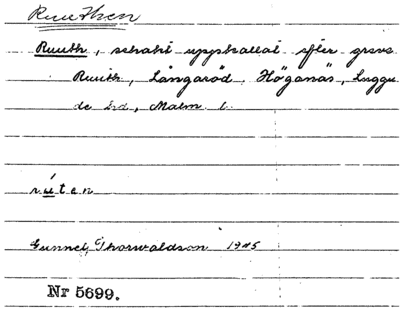 Ruuthen
Ruuth, schakt uppkallat efter greve
Ruuth, Långaröd. Höganäs, Luggu
de hd, Malm l.
rúten
Gunnel Thorwaldson 1945
Nr 5699.